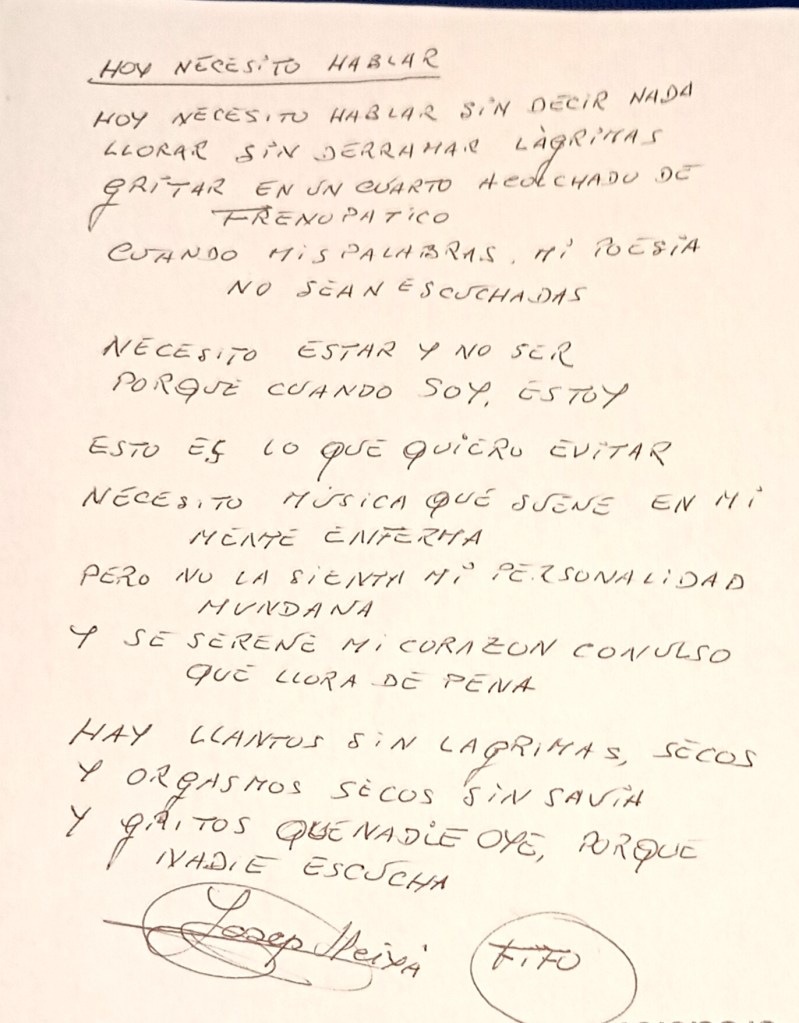 HOY NECESITO HABLAR
HOY NECESITO HABLAR SIN DECIR NADA
LLORAR SIN DERRAMAR LÀGRIMAS
GRITAR EN UN CUARTO ACOLCHADO DE
FRENOPATICO
CUANDO MIS PALABRAS, MI POESIA
NO SEAN ESCUCHADAS
NECESITO ESTAR Y NO SER
PORQUE CUANDO SOY, ESTOY
ESTO ES LO QUE QUIERO EVITAR
NECESITO MÚSICA QUE SUENE EN MI
MENTE ENFERMA
PERO NO LA SIENTA MI PERSONALIDAD
MUNDANA
Y SE SERENE MI CORAZON CONVULSO
QUE LLORA DE PENA
HAY LLANTOS SIN LAGRIMAS, SECOS
Y ORGASMOS SECOS SIN SAVIA
Y GRITOS QUE NADIE OYE, PORQUE
NADIE ESCUCHA
Josep
FITO